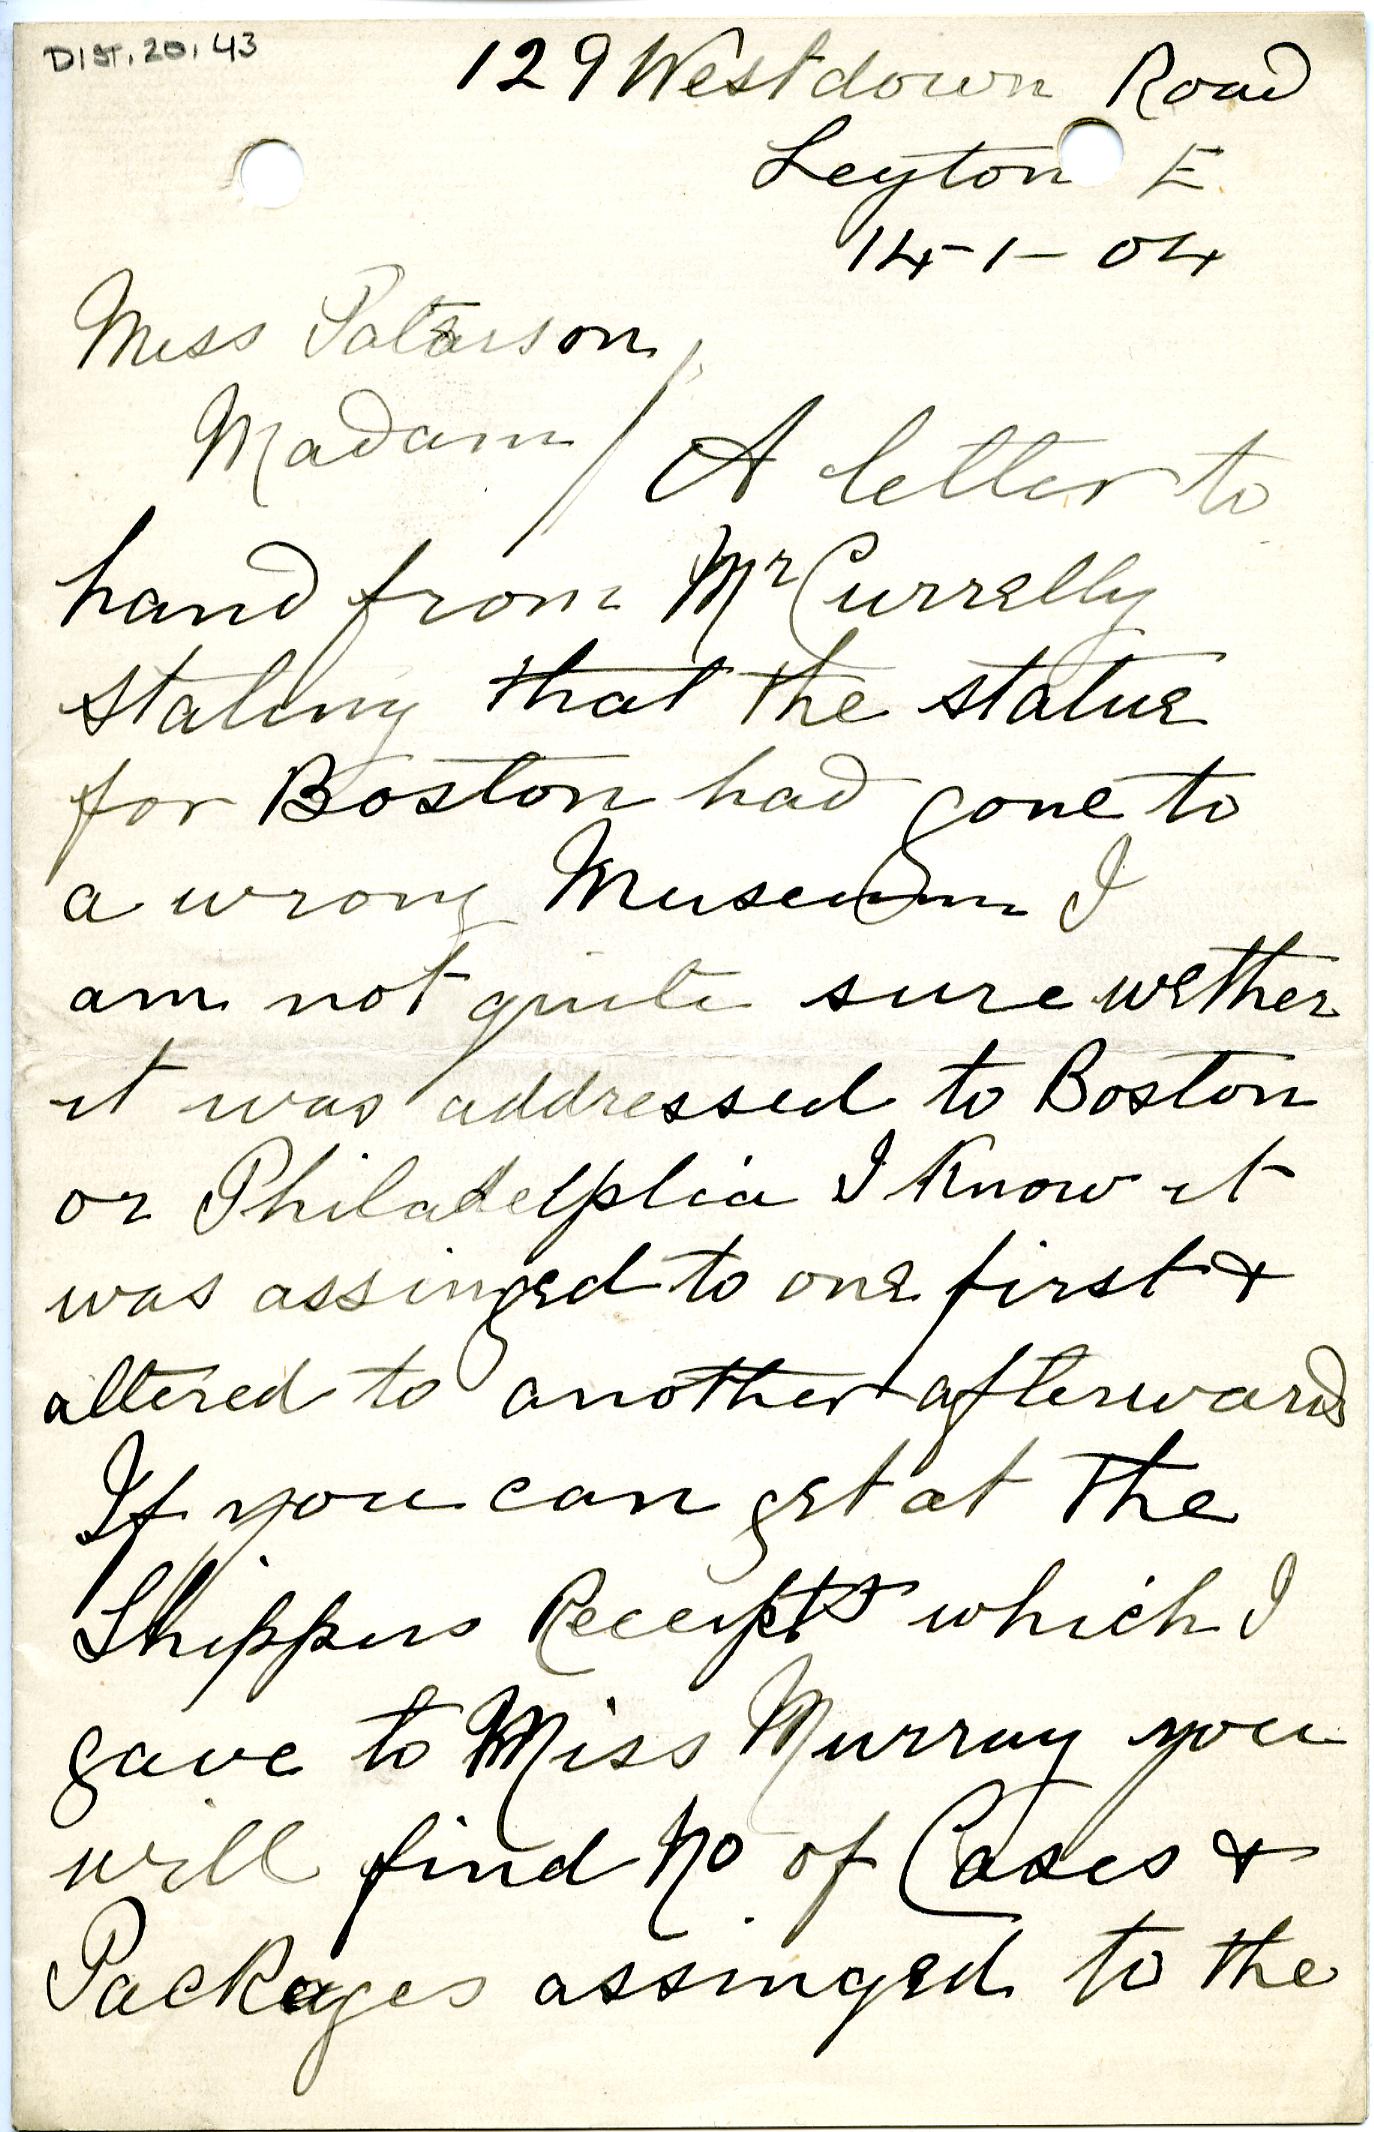 DIST. 20. 43
129 Westdown Road
Leyton E.
14-1-04
Miss Paterson,
Madam/ A letter to
hand from Mr Currelly
stating that the statue
for Boston had gone to
a wrong Museum I
am not quite sure wether
it was addressed to Boston
or Philadelplia I Know it
was assinged to one first &
altered to another afterwards
If you can get at the
Shippers Receipts which I
gave to Miss Murray you
will find No of Cases &
Packages assinged to the